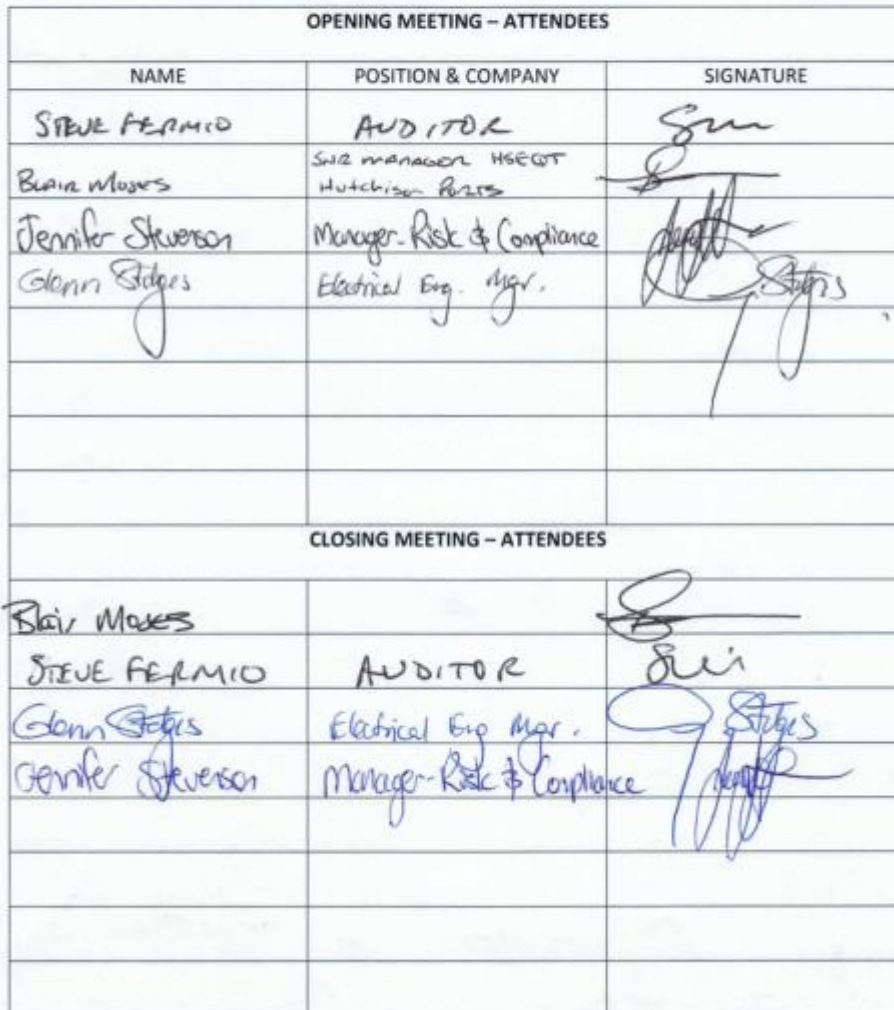 OPENING MEETING – ATTENDEES
NAME POSITION & COMPANY SIGNATURE
STEVE FERMIO AUDITOR
SNR MANAGER HSEQT
BLAIR MOSES Hutchison Ports
Jennifer Stevenson Manager-Risk & Compliance
Glenn Electrical Eng. Mgr.
CLOSING MEETING – ATTENDEES
Blair Moses
STEVE FERMIO AUDITOR
Glenn Electrical Eng Mgr.
Jennifer Stevenson Manager-Risk & Compliance